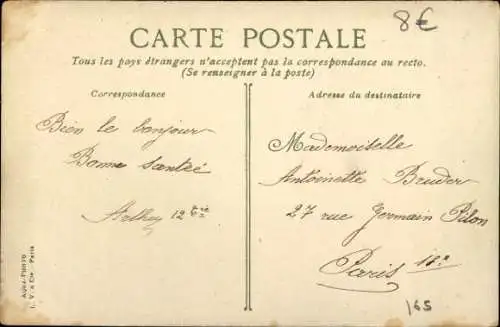 8€
CARTE POSTALE
Tous les pays étrangers n'acceptent pas la correspondance au recto.
(Se renseigner à la poste)
Correspondance
Adresse du destinataire
Bien le bonjour
Bonne santée
12
Mademoiselle
Antoinette Bruder
27 rue Germain Pilon
Paris 18e
165
AQUA-PHOTO
L. V. & Cie - Paris